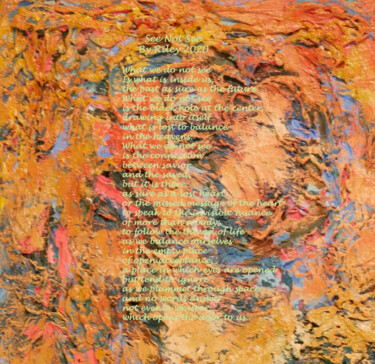 See Not See
By Riley 2020
What we do not see
Is what is inside us,
the past as sure as the future
What we do not see
is the black hole at the center,
drawing into itself
what is lost to balance
in the heavens.
What we do not see
is the connection
between savior
and the saved,
but it is there
as sure as a lost heart
or the missed message of the heart
to speak to the invisible nuance
of more than nobody,
to follow the thread of life
as we balance ourselves
in the empty place
of open acceptance,
a place in which eyes are opened
but tend to ignore
as we plummet through space
and no words
not even
which opens the door to us.